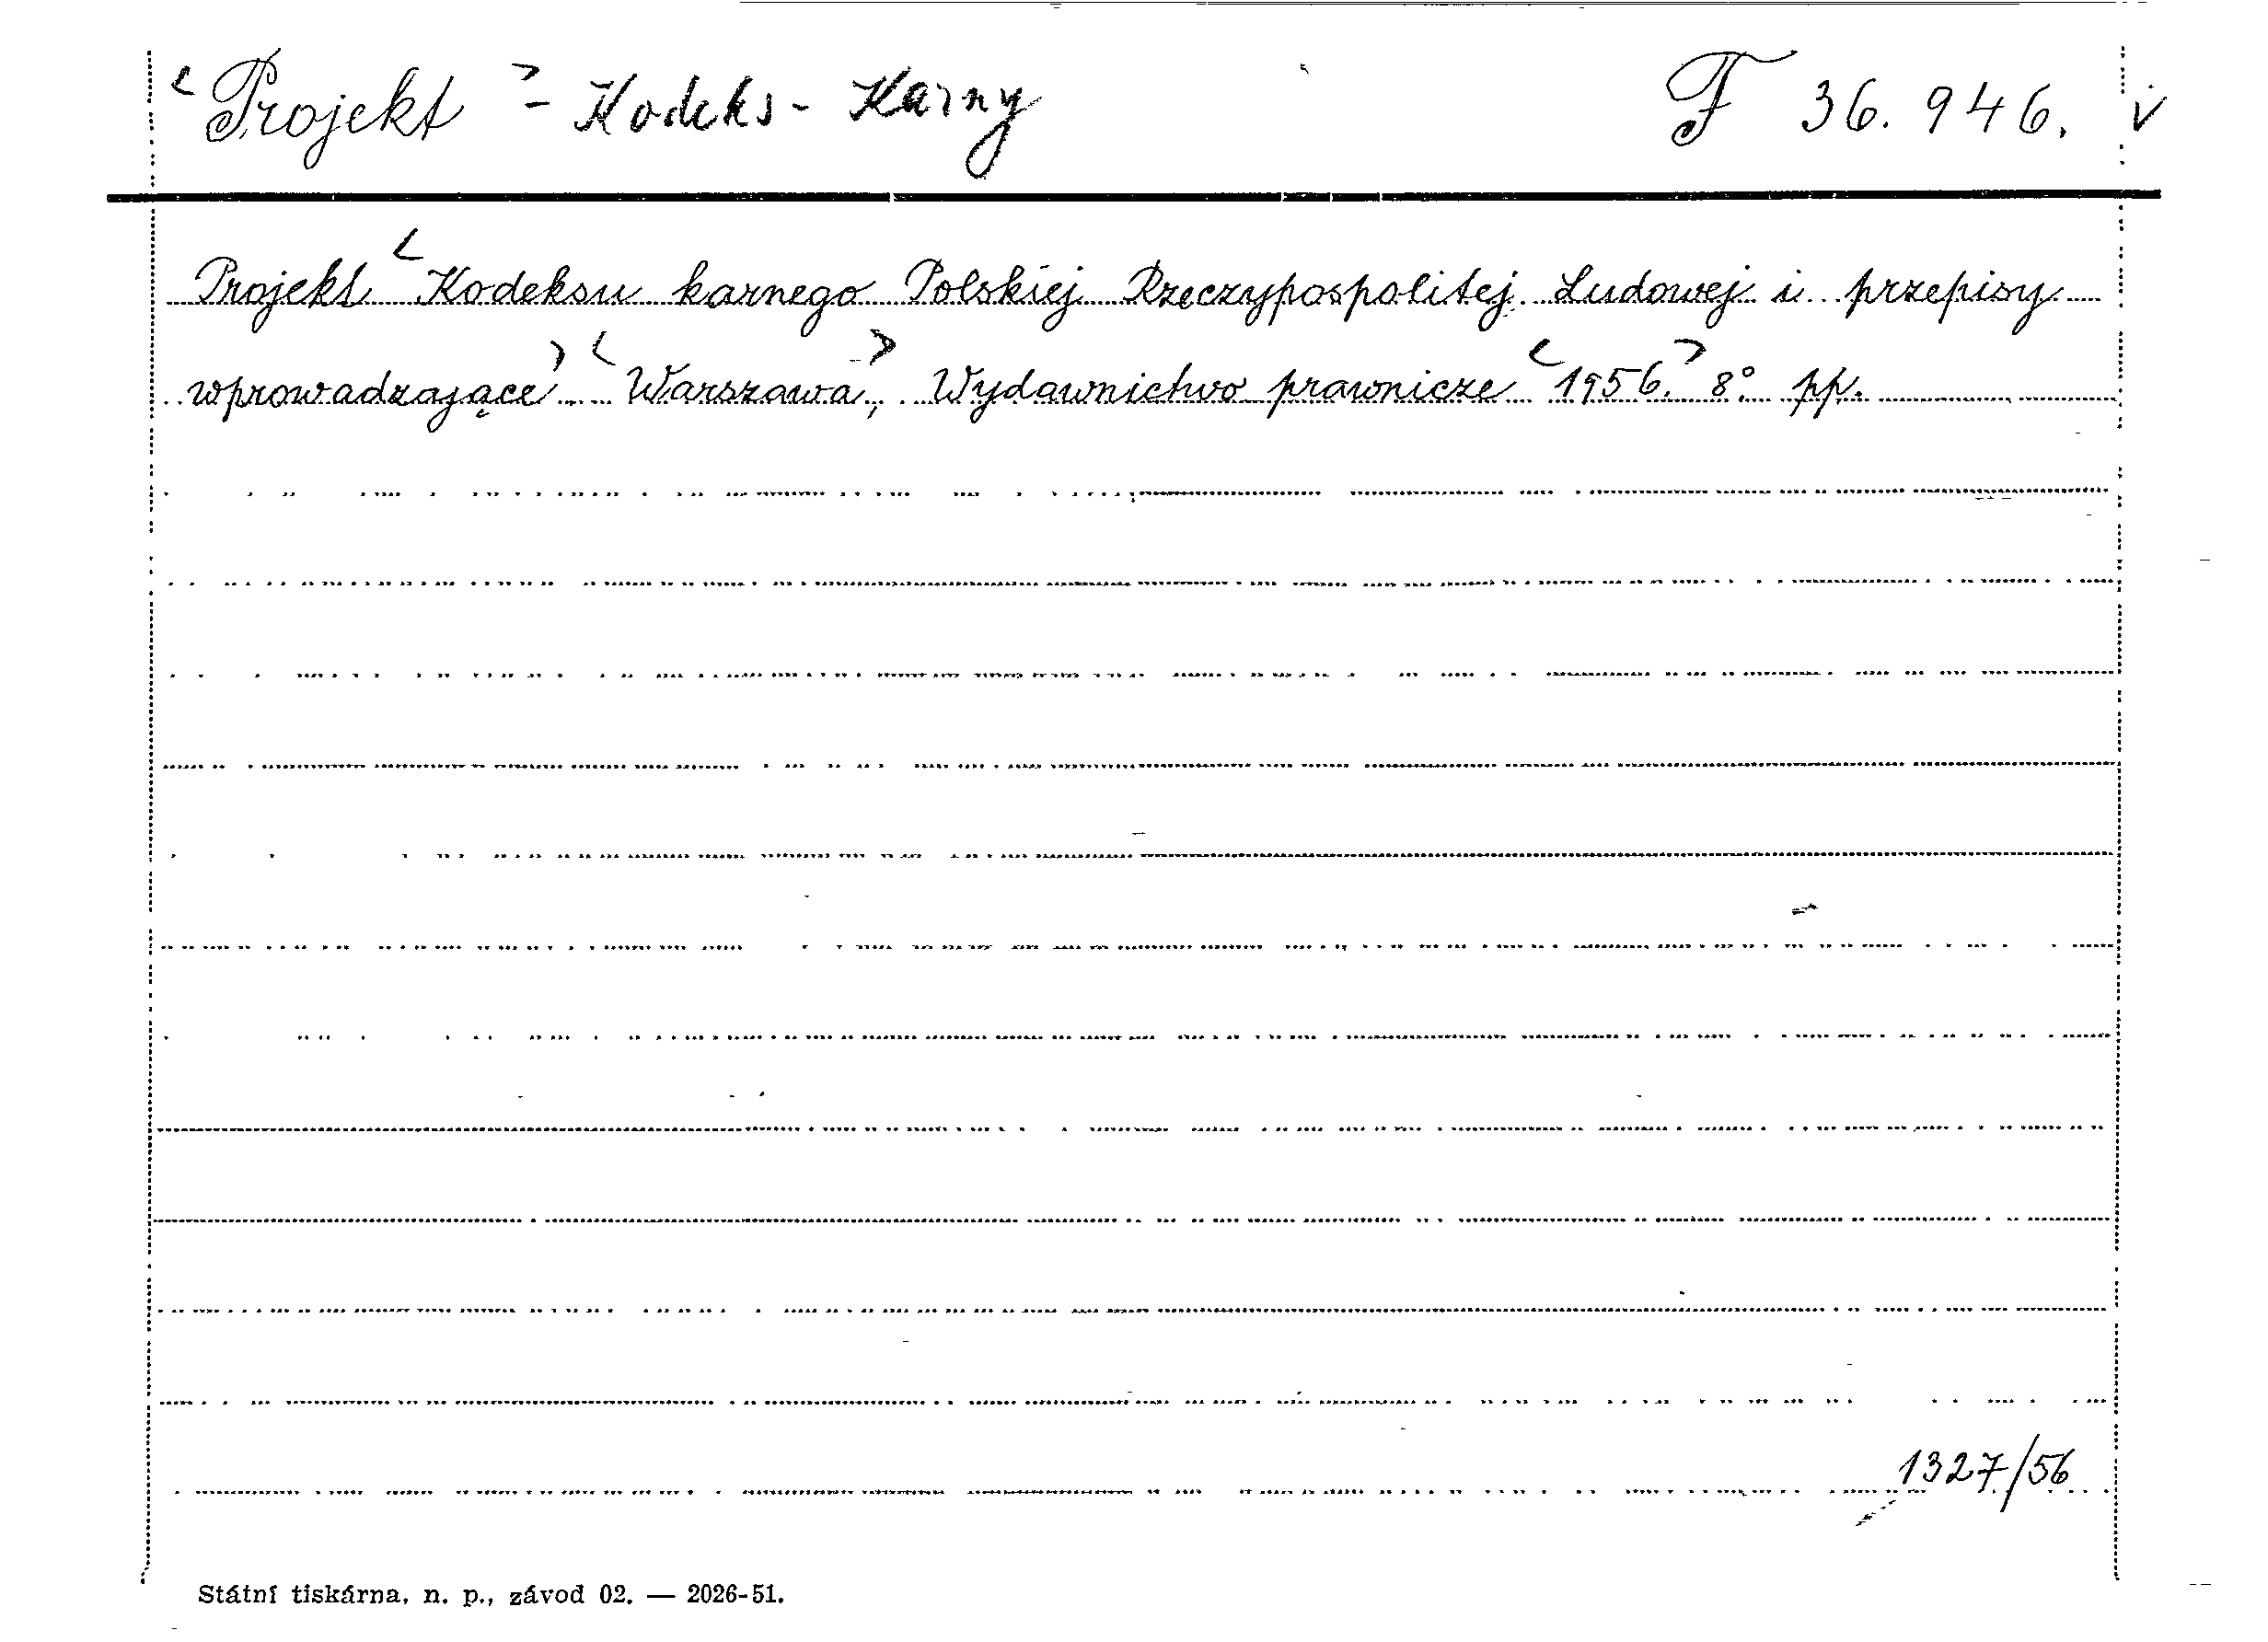 <Projekt> - Kodeks - Karny F 36.946. v
Projekt <Kodeksu karnego Polskiej Rzeczypospolitej Ludowej i przepisy
wprowadzające> <Warszawa,> Wydawnictwo prawnicze <1956.> 8° pp.
1327/56
Státní tiskárna, n. p., závod 02. — 2026-51.